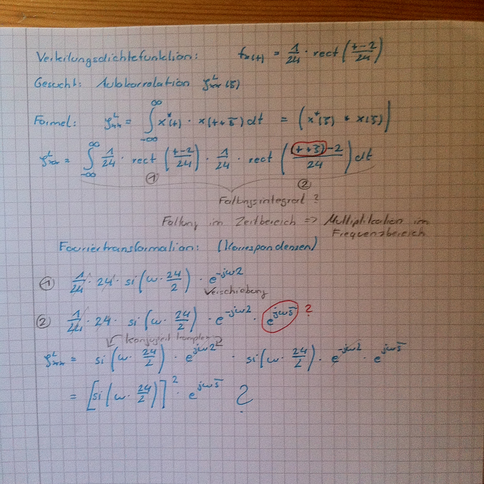 Verteilungsdichtefunktion: fx(t) = 1/24 · rect((t-2)/24)
Gesucht: Autokorrelation φ^L_xx(ξ)
Formel: φ^L_xx = ∫_{-∞}^{∞} x*(t) · x(t+ξ) dt = (x*(ξ) * x(ξ))
φ^L_xx = ∫_{-∞}^{∞} 1/24 · rect((t-2)/24) · 1/24 · rect(((t+ξ)-2)/24) dt
① ②
Faltungsintegral ?
Faltung im Zeitbereich => Multiplikation im
Frequenzbereich
Fouriertransformation: (Korrespondenzen)
① 1/24 · 24 · si(ω · 24/2) · e^{-jω2}
Verschiebung
② 1/24 · 24 · si(ω · 24/2) · e^{-jω2} · e^{jωξ} ?
konjugiert komplex
φ^L_xx = si(ω · 24/2) · e^{jω2} · si(ω · 24/2) · e^{-jω2} · e^{jωξ}
= [si(ω · 24/2)]² · e^{jωξ} ?